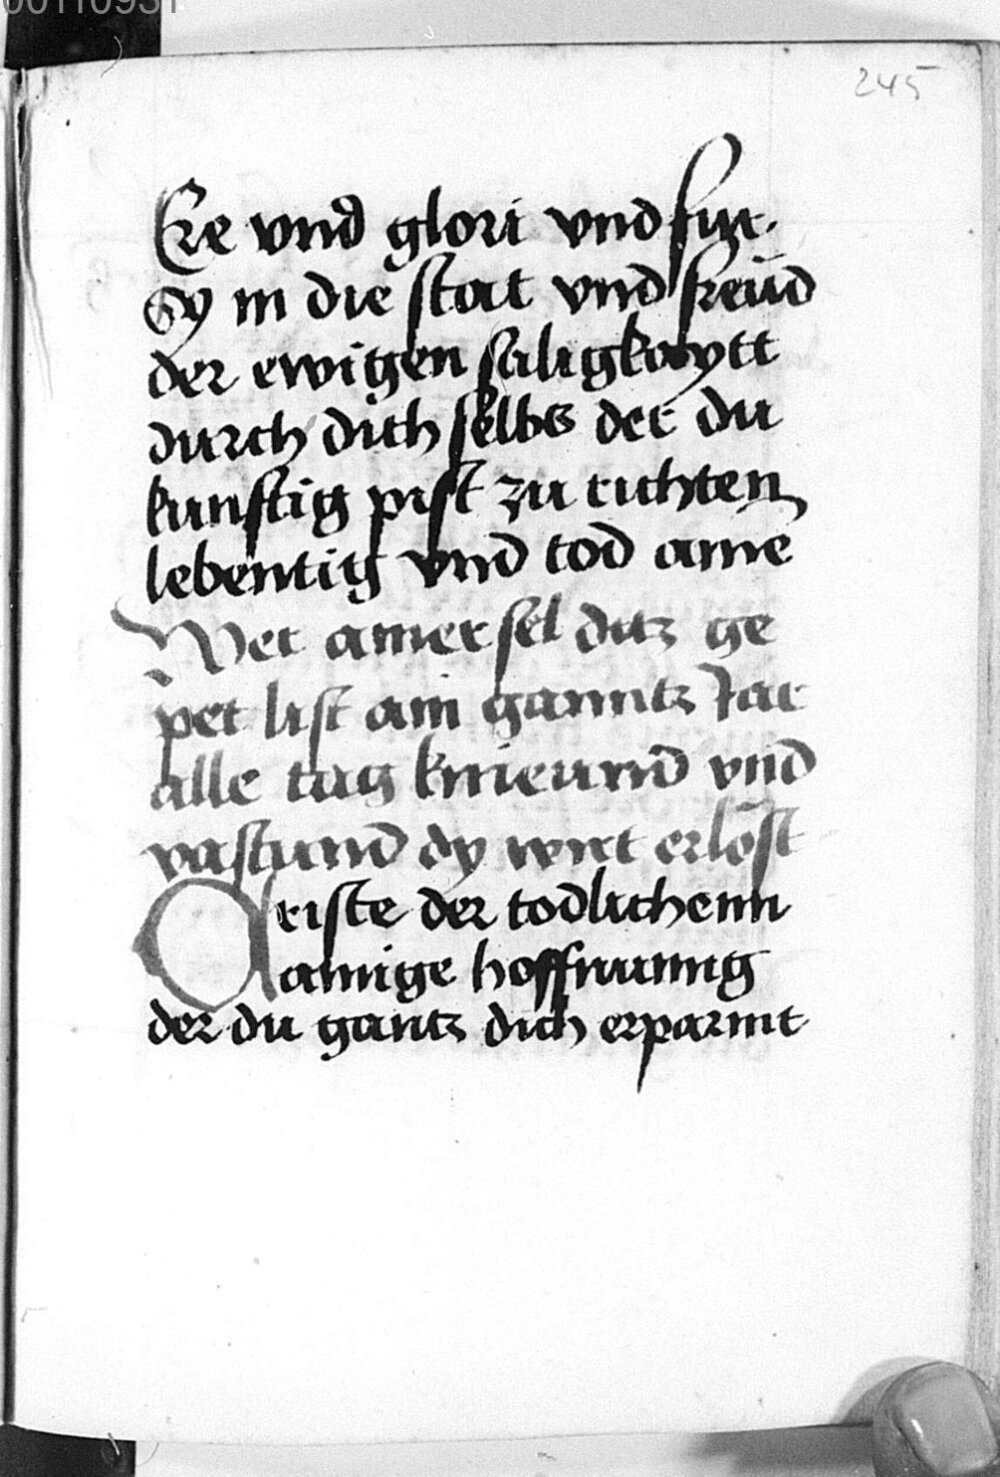 00110931
245
Ere vnd glori vnd fur
Sy in die stat vnd freüd
der ewigen saligkaytt
durch dich selbs der du
kunftig pist zu richten
lebentig vnd tod ame
Wer ainer sel ditz ge
pet list ain ganntz Jar
alle tag knieund vnd
vastund dy wirt erlöst
Criste der todlichenn
ainige hoffnunng
der du gantz dich erparmt